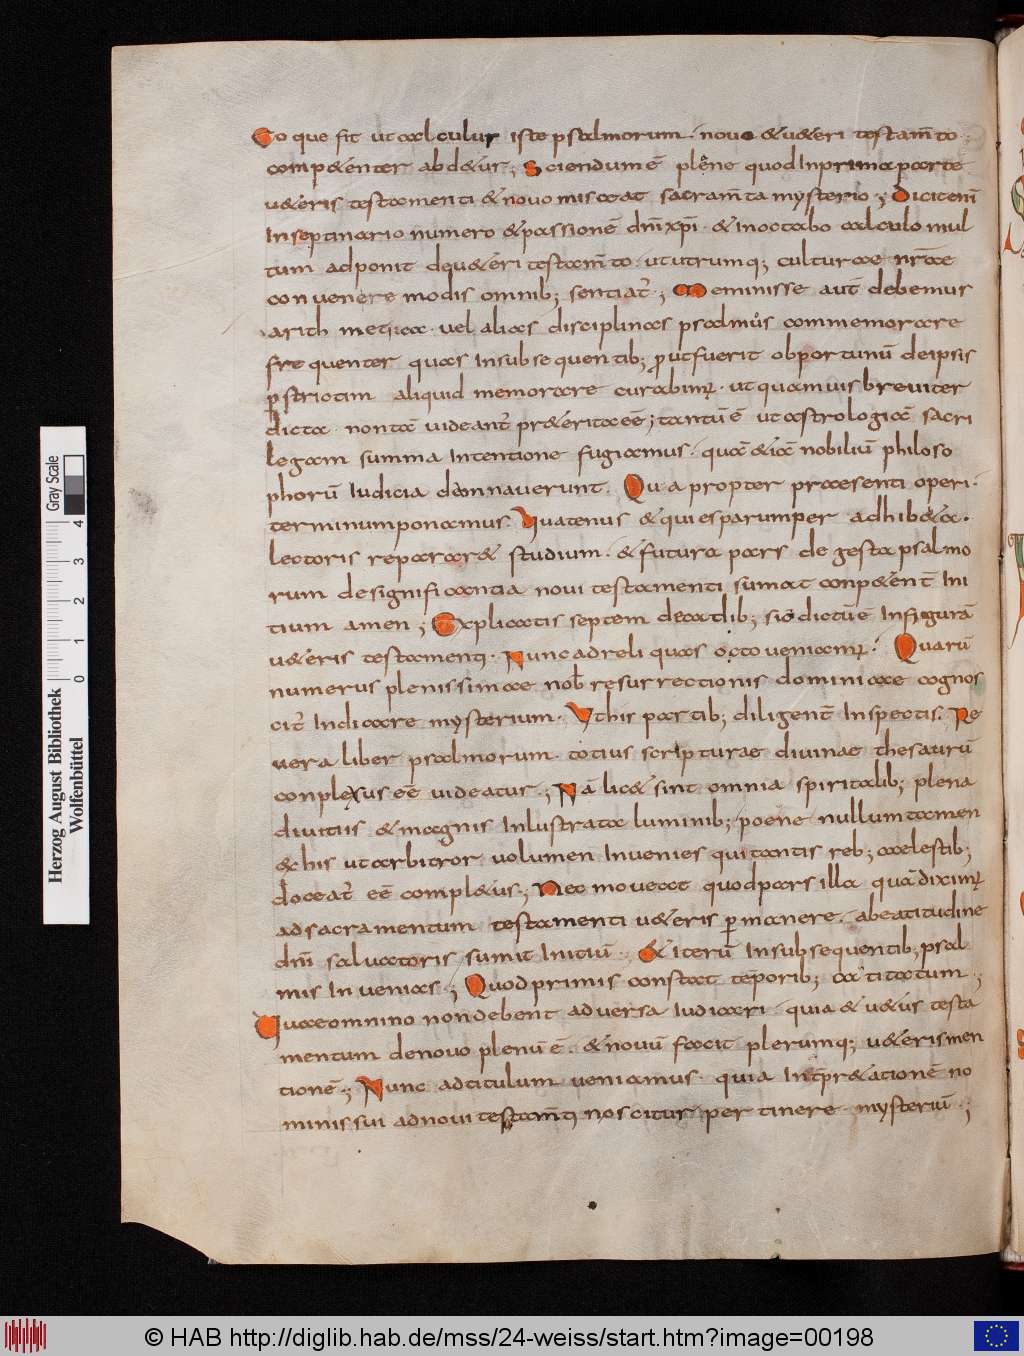 Eo que fit ut calculur iste psalmorum · novo & u&eri testam̄to ·
comp&enter abd&ur ·; Sciendum ē plene quod In prima parte
u&eris testamenti & novo misceat sacram̄ta mysterio ·; Dicit eni̅
In septinario numero & passionē dn̄i xp̄i · & In octabo calculo mul
tum adponit de u&eri testam̄to · ut utrumq; culturae nr̄ae
convenere modis omnib; sentiat̄ ·; Meminisse aut̄ debemus
arithmeticae · vel alias disciplinas psalmus commemorare
frequenter quas Insubsequentib; prout fuerit obportunū de ipsis
pstrictim aliquid memorare curabimꝰ · ut quamuis breviter
dicta · non tam̄ videant̄ pr&erita eē; tantū ē ut astrologicā sacri
legam summa Intentione fugiamus · quā & iā nobiliū philoso
phorū Iudicia damnaverunt · Quapropter praesenti operi ·
terminum ponamus · Quatenus & quies parumper adhib&a ·
lectoris reparar& studium · & futura pars degesta psalmo
rum de significantia novi testamenti sumat conp&ent̄ Ini
tium amen ; Explicatis septem decadib; sic dictū ē In figurā
u&eris testamenti · Nunc ad reliquas octo veniamꝰ · Quarū
numerus plenissimae nob̄ resurrectionis dominicae cognos
cit̄ Indicare mysterium · Ut his partib; diligent̄ Inspectis · Re
vera liber psalmorum totius scripturae divinae thesaurū
conplexus eē videatur ·; Nā lic& sint omnia spiritalib; plena
divitiis & magnis Inlustrata luminib; poene nullum tamen
& his ut arbitror volumen Invenies qui tantis reb; caelestib;
doceat̄ eē compl&us ·; Nec moveat quod pars illa quā diximꝰ
ad sacramentum testamenti u&eris p̄manere · a beatitudine
dn̄i salvatoris sumit Initiū · & iterū Insubsequentib; psal
mis Invenias ·; Quod primis constat tēporib; actitatum ·;
Quae omnino non debent adversa Iudicari · quia & u&us testa
mentum de novo plenū ē · & novū facit plerumq; u&eris men
tionē ·; Nunc ad titulum veniamus · quia Int̄pr&ationē no
minis sui ad novi testam̄ti noscitur pertinere mysteriū ·;
Herzog August Bibliothek
Wolfenbüttel
Gray Scale
0 1 2 3 4
© HAB http://diglib.hab.de/mss/24-weiss/start.htm?image=00198